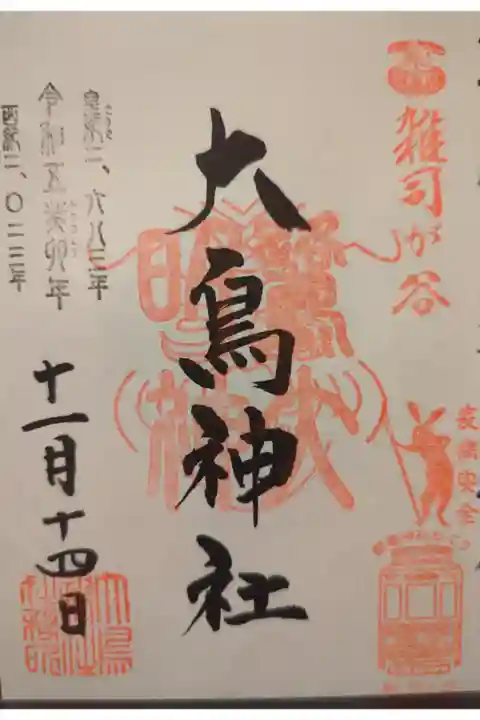 雑司が谷
交通安全
大鳥神社
皇紀二、六八三年
令和五癸卯年
西暦二、〇二三年
十一月十四日